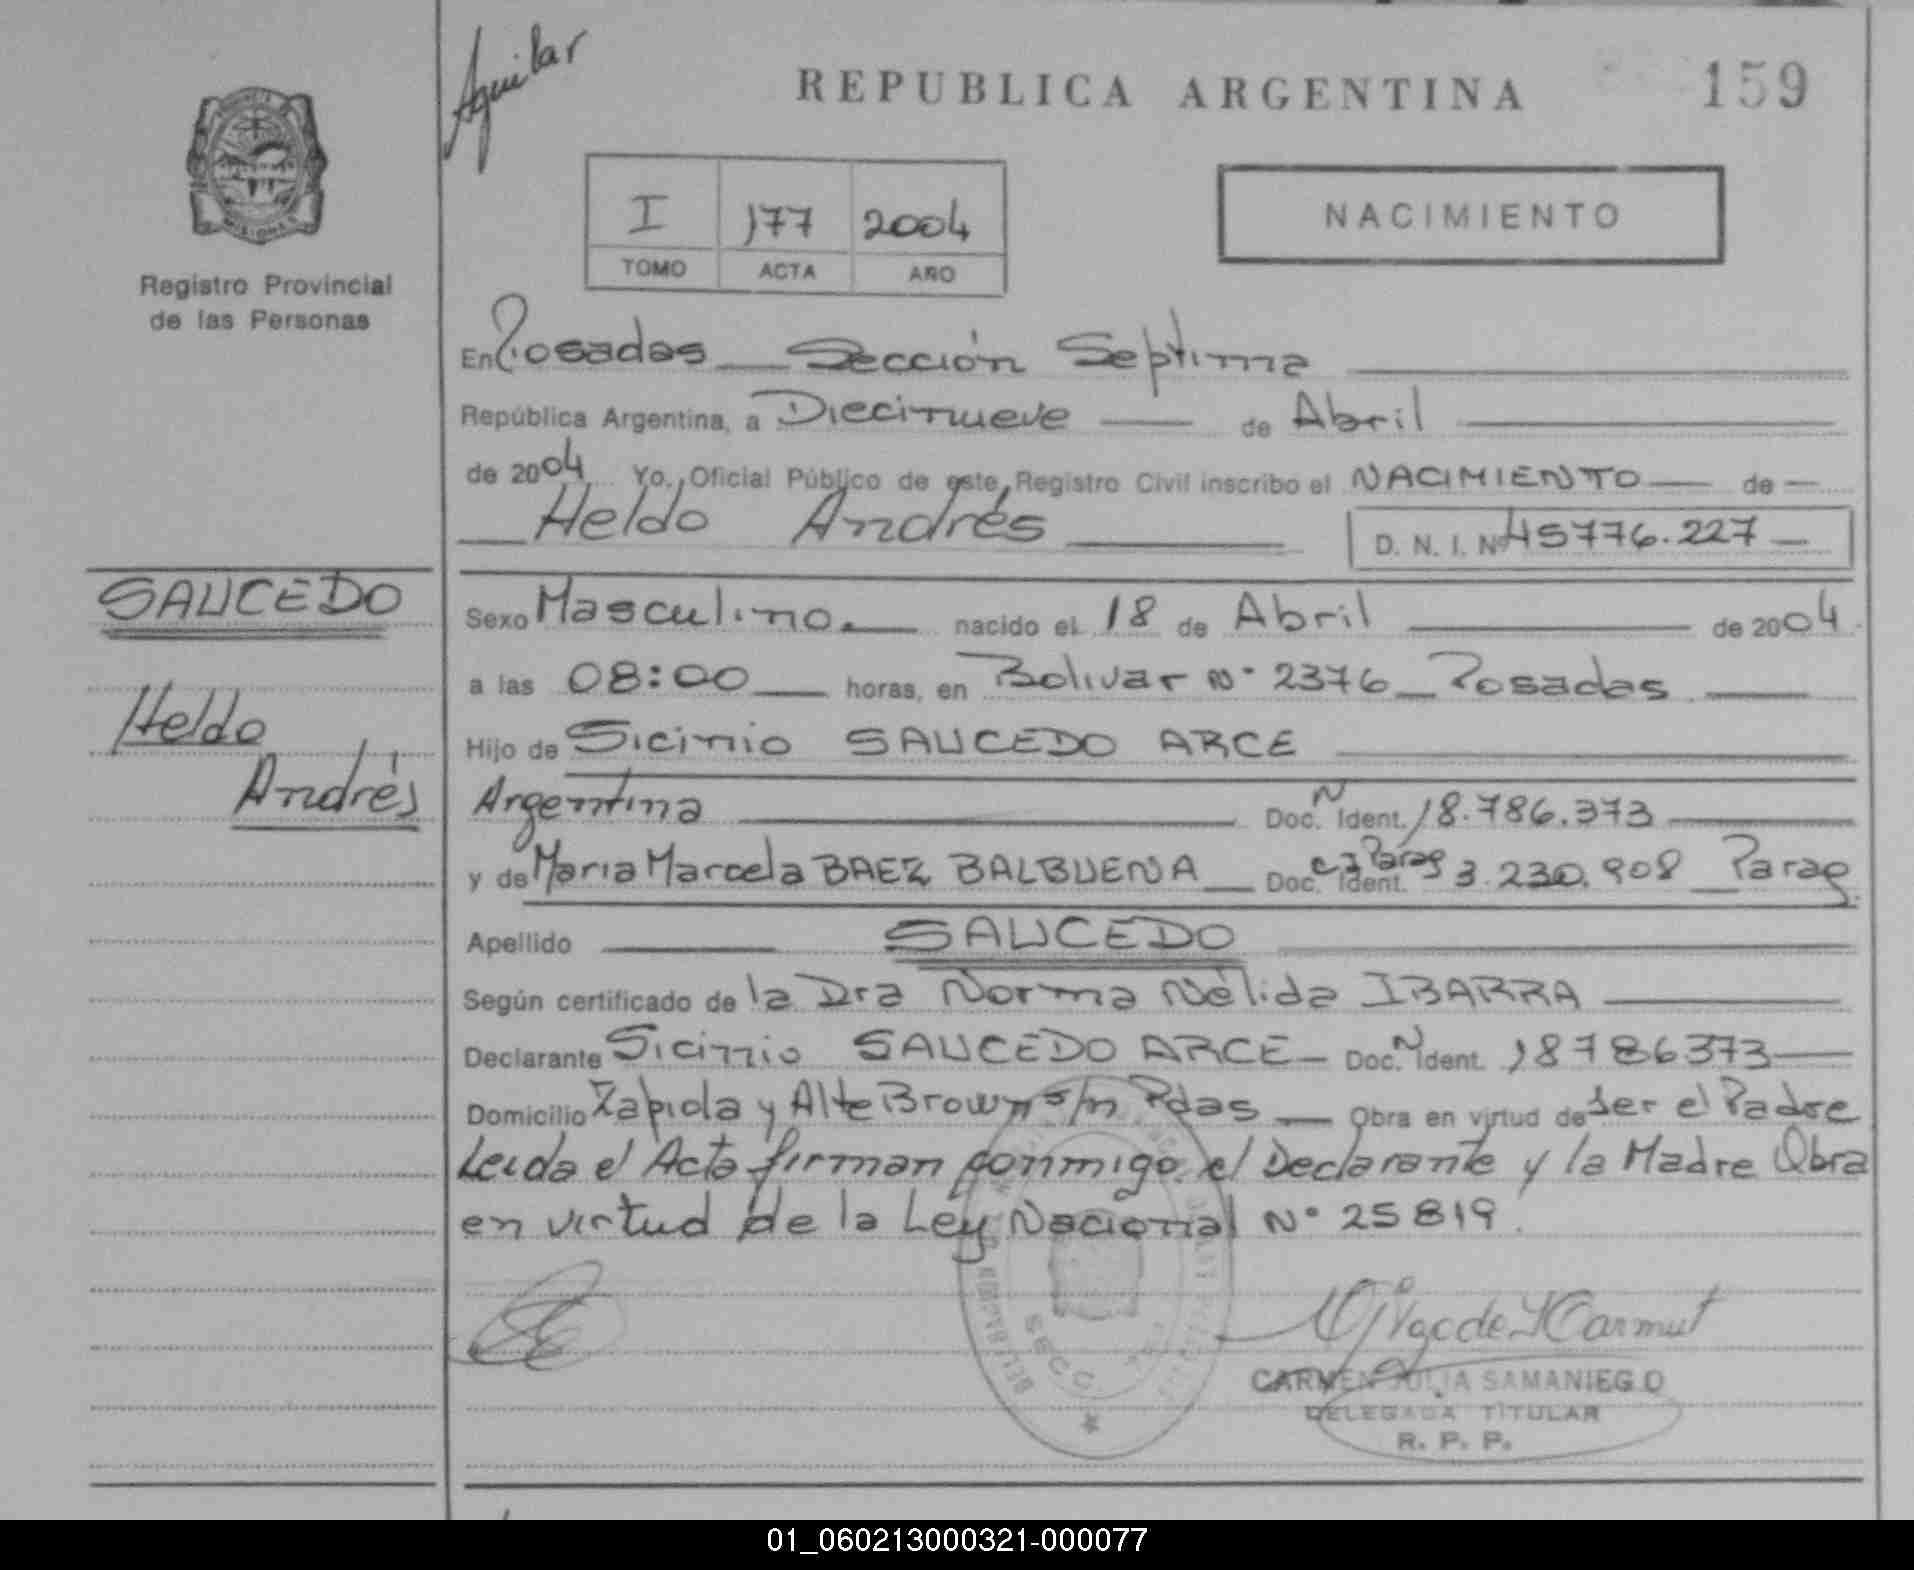 Aguilar
REPUBLICA ARGENTINA
159
MISIONES
Registro Provincial
de las Personas
I 177 2004
TOMO ACTA AÑO
NACIMIENTO
En Posadas Sección Septima
República Argentina, a Diecinueve de Abril
de 2004 Yo, Oficial Público de este Registro Civil inscribo el NACIMIENTO de
Heldo Andrés
D. N. I. Nº 45776.227
SAUCEDO
Heldo
Andrés
Sexo Masculino. nacido el 18 de Abril de 2004
a las 08:00 horas, en Bolivar Nº 2376 Posadas
Hijo de Sicinio SAUCEDO ARCE
Argentina Doc. N Ident. 18.786.373
y de Maria Marcela BAEZ BALBUENA Doc. Ident. Parag 3.230.908 Parag
Apellido SAUCEDO
Según certificado de la Dra Norma Nélida IBARRA
Declarante Sicinio SAUCEDO ARCE Doc. N Ident. 18786373
Domicilio Zapiola y Alte Brown s/n Pdas Obra en virtud de ser el Padre
Leida el Acta firman conmigo el Declarante y la Madre Obra
en virtud de la Ley Nacional Nº 25819.
SECC.
CARMEN JULIA SAMANIEGO
DELEGADA TITULAR
R. P. P.
01_060213000321-000077